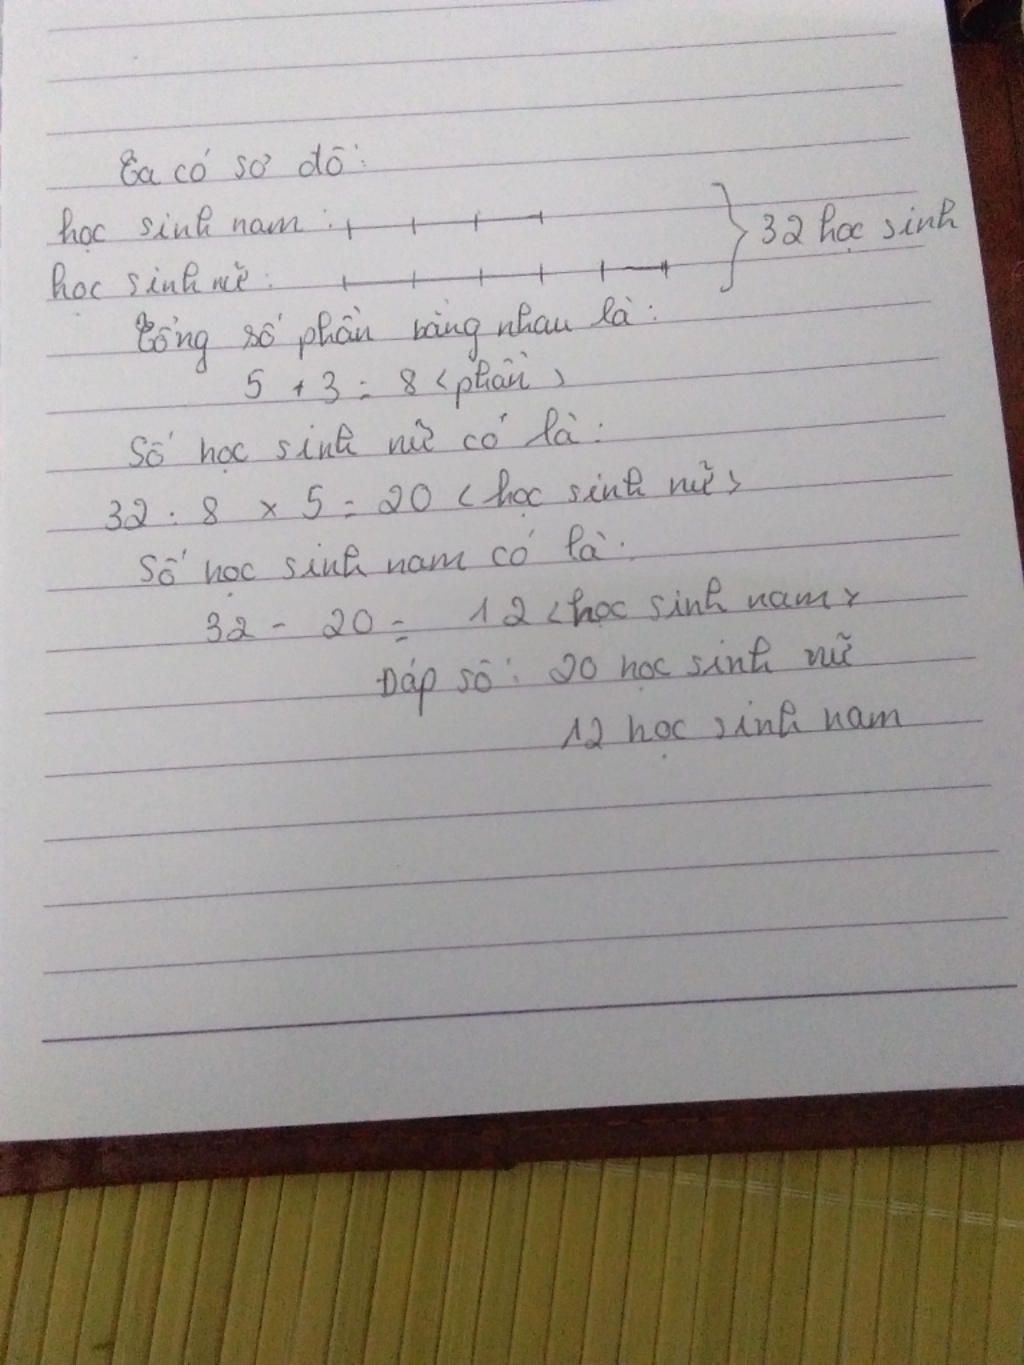 Ta có sơ đồ:
học sinh nam:
học sinh nữ:
32 học sinh
Tổng số phần bằng nhau là:
5 + 3 = 8 (phần)
Số học sinh nữ có là:
32 : 8 x 5 = 20 (học sinh nữ)
Số học sinh nam có là:
32 - 20 = 12 (học sinh nam)
Đáp số: 20 học sinh nữ
12 học sinh nam